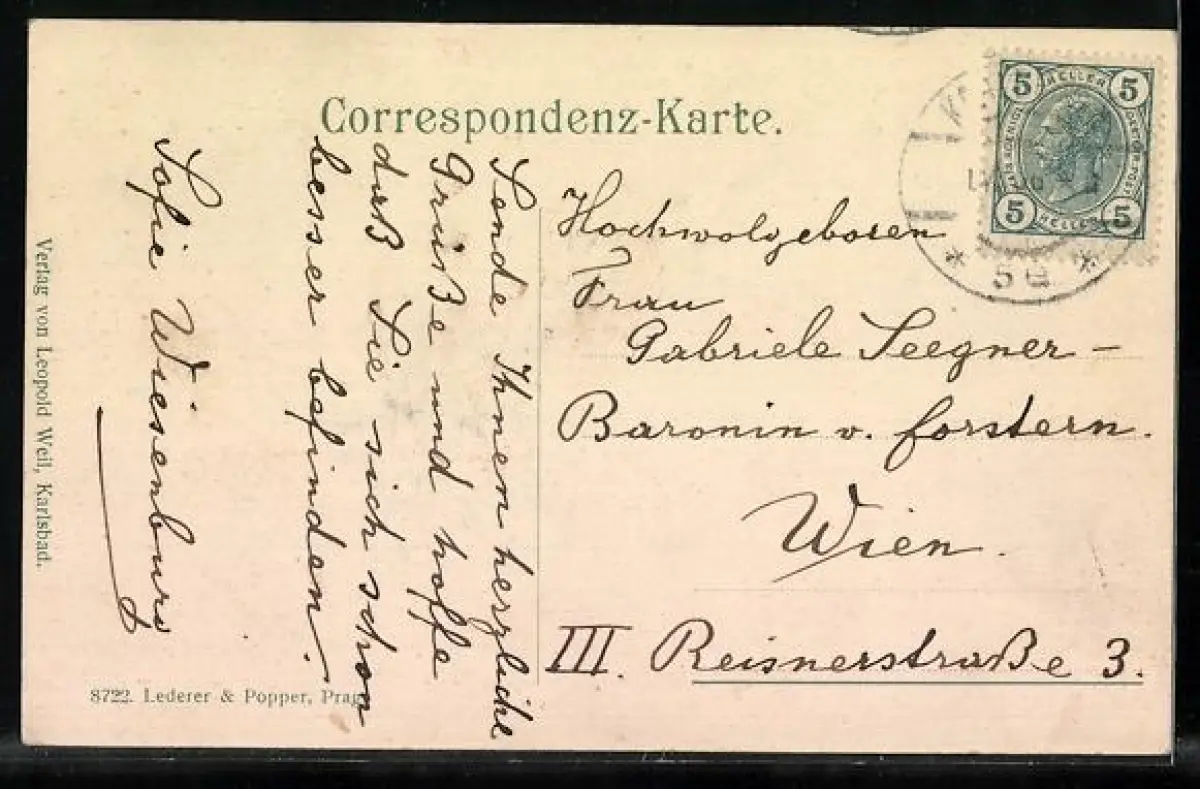 Correspondenz-Karte.
Sende Ihnen herzliche
Grüße und hoffe
daß Sie sich schon
besser befinden.
Sofie Wiesenburg
Hochwolgeboren
Frau
Gabriele Seegner-
Baronin v. Forstern.
Wien.
III. Reisnerstraße 3.
5 HELLER 5
5 HELLER 5
* 5a *
Verlag von Leopold Weil, Karlsbad.
8722. Lederer & Popper, Prag